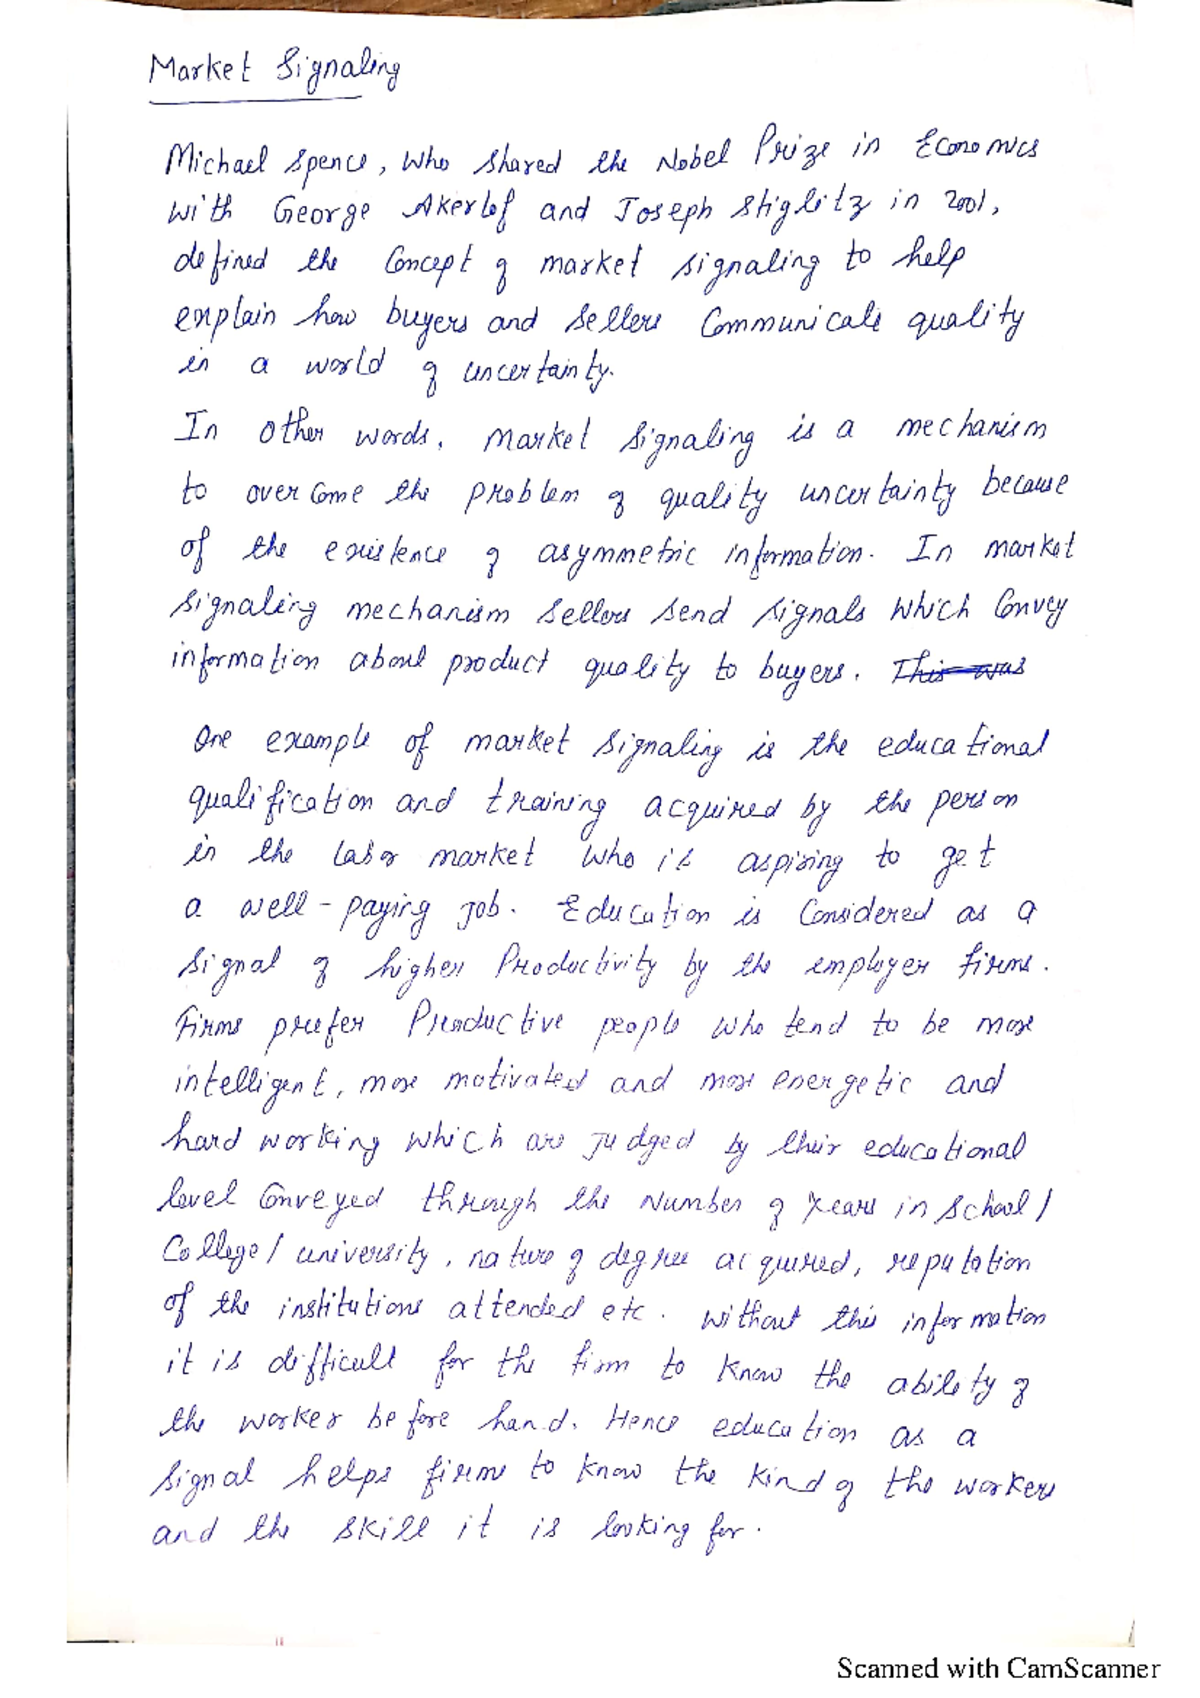 Market Signaling
Michael Spence, who shared the Nobel Prize in Economics
with George Akerlof and Joseph Stiglitz in 2001,
defined the Concept of market signaling to help
explain how buyers and sellers Communicate quality
in a world of uncertainty.
In other words, market signaling is a mechanism
to overcome the problem of quality uncertainty because
of the existence of asymmetric information. In market
signaling mechanism sellers send signals which Convey
information about product quality to buyers. This was
One example of market signaling is the educational
qualification and training acquired by the person
in the labor market who is aspiring to get
a well-paying job. Education is Considered as a
signal of higher Productivity by the employer firms.
Firms prefer Productive people who tend to be more
intelligent, more motivated and more energetic and
hard working which are judged by their educational
level Conveyed through the Number of years in School/
College/university, nature of degree acquired, reputation
of the institutions attended etc. without this information
it is difficult for the firm to know the ability of
the worker before hand. Hence education as a
signal helps firms to know the kind of the workers
and the skill it is looking for.
Scanned with CamScanner